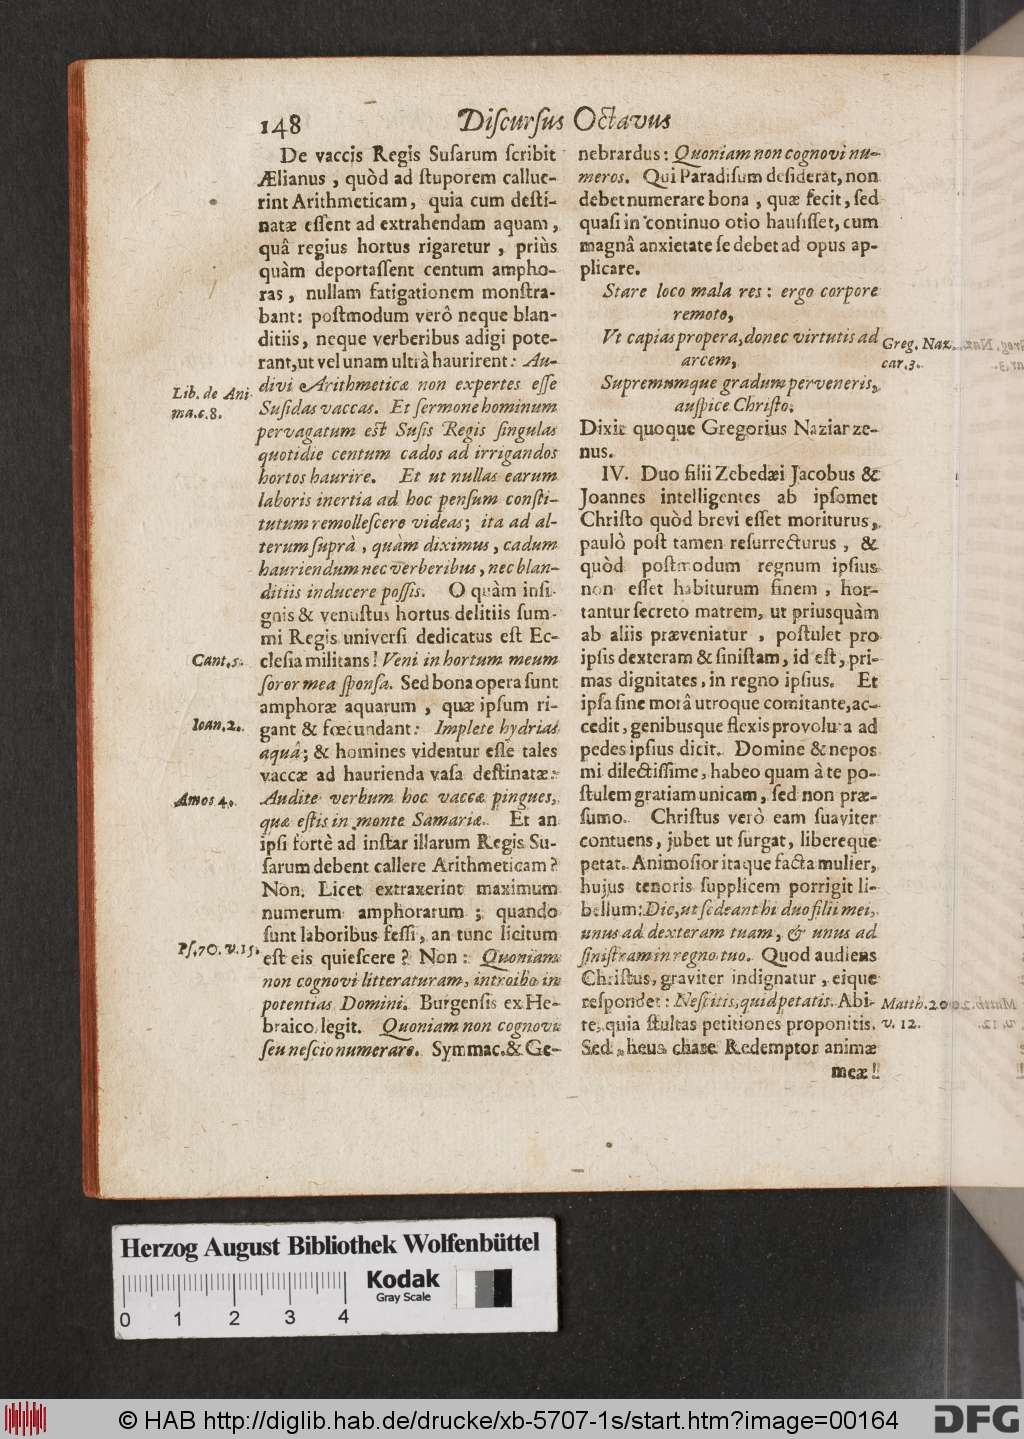 148 Discursus Octavus
De vaccis Regis Susarum scribit
Ælianus, quòd ad stuporem callue-
rint Arithmeticam, quia cum desti-
natæ essent ad extrahendam aquam,
quâ regius hortus rigaretur, priùs
quàm deportassent centum ampho-
ras, nullam fatigationem monstra-
bant: postmodum verò neque blan-
ditiis, neque verberibus adigi pote-
rant, ut vel unam ultrà haurirent: Au-
divi Arithmeticæ non expertes esse
Susidas vaccas. Et sermone hominum
pervagatum est Susis Regis singulas
quotidie centum cados ad irrigandos
hortos haurire. Et ut nullas earum
laboris inertia ad hoc pensum consti-
tutum remollescere videas; ita ad al-
terum suprà, quàm diximus, cadum
hauriendum nec verberibus, nec blan-
ditiis inducere possis. O quàm insi-
gnis & venustus hortus delitiis sum-
mi Regis universi dedicatus est Ec-
clesia militans! Veni in hortum meum
soror mea sponsa. Sed bona opera sunt
amphoræ aquarum, quæ ipsum ri-
gant & fœcundant: Implete hydrias
aquâ; & homines videntur esse tales
vaccæ ad haurienda vasa destinatæ:
Audite verbum hoc vaccæ pingues,
quæ estis in monte Samariæ. Et an
ipsi fortè ad instar illarum Regis Su-
sarum debent callere Arithmeticam?
Non. Licet extraxerint maximum
numerum amphorarum; quando
sunt laboribus fessi, an tunc licitum
est eis quiescere? Non: Quoniam
non cognovi litteraturam, introibo in
potentias Domini. Burgensis ex He-
braico legit. Quoniam non cognovi
seu nescio numerare. Symmac. & Ge-
Lib. de Ani
ma. c. 8.
Cant. 5.
Ioan. 2.
Amos 4.
Ps. 70. v. 15.
nebrardus: Quoniam non cognovi nu-
meros. Qui Paradisum desiderat, non
debet numerare bona, quæ fecit, sed
quasi in continuo otio hausisset, cum
magnâ anxietate se debet ad opus ap-
plicare.
Stare loco mala res: ergo corpore
remoto,
Vt capias propera, donec virtutis ad
arcem,
Supremumque gradum perveneris,
auspice Christo.
Dixit quoque Gregorius Nazianze-
nus.
IV. Duo filii Zebedæi Jacobus &
Joannes intelligentes ab ipsomet
Christo quòd brevi esset moriturus,
paulò post tamen resurrecturus, &
quòd postmodum regnum ipsius
non esset habiturum finem, hor-
tantur secreto matrem, ut priusquàm
ab aliis præveniatur, postulet pro
ipsis dexteram & sinistam, id est, pri-
mas dignitates, in regno ipsius. Et
ipsa sine morâ utroque comitante, ac-
cedit, genibusque flexis provoluta ad
pedes ipsius dicit. Domine & nepos
mi dilectissime, habeo quam à te po-
stulem gratiam unicam, sed non præ-
sumo. Christus verò eam suaviter
contuens, jubet ut surgat, libereque
petat. Animosior itaque facta mulier,
hujus tenoris supplicem porrigit li-
bellum: Dic, ut sedeant hi duo filii mei,
unus ad dexteram tuam, & unus ad
sinistram in regno tuo. Quod audiens
Christus, graviter indignatur, eique
respondet: Nescitis, quid petatis. Abi-
te, quia stultas petitiones proponitis.
Sed, heus chare Redemptor animæ
meæ!
Greg. Naz.
car. 3.
Matth. 20
v. 12.
Herzog August Bibliothek Wolfenbüttel
Kodak
Gray Scale
0 1 2 3 4
© HAB http://diglib.hab.de/drucke/xb-5707-1s/start.htm?image=00164
DFG